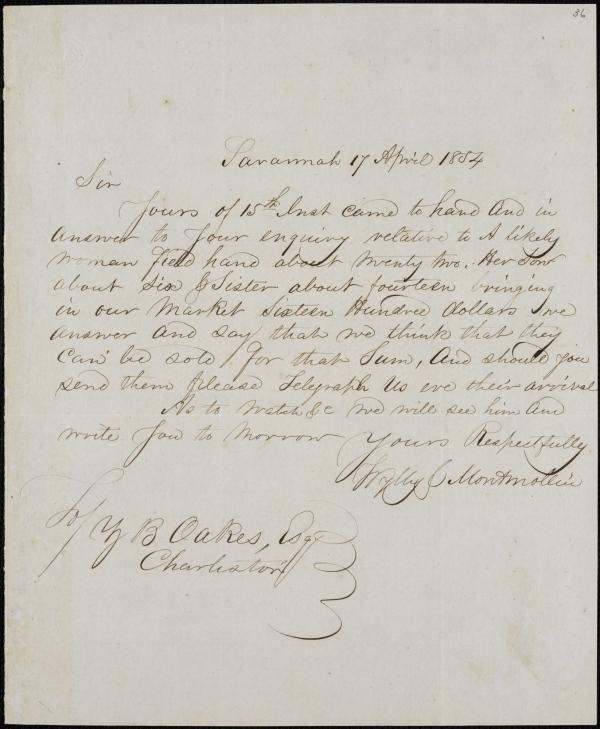 36
Savannah 17 April 1854
Sir
Yours of 15th Inst came to hand and in
answer to your enquiry relative to A likely
woman field hand about twenty two. Her Son
about six & Sister about fourteen bringing
in our market Sixteen Hundred dollars we
answer and say that we think that they
can be sold for that Sum, And should you
send them please Telegraph us eve their arrival
As to Watch &c we will see him and
write you to morrow
Yours Respectfully
Wylly & Montmollin
To/ Z B Oakes, Esqr
Charleston